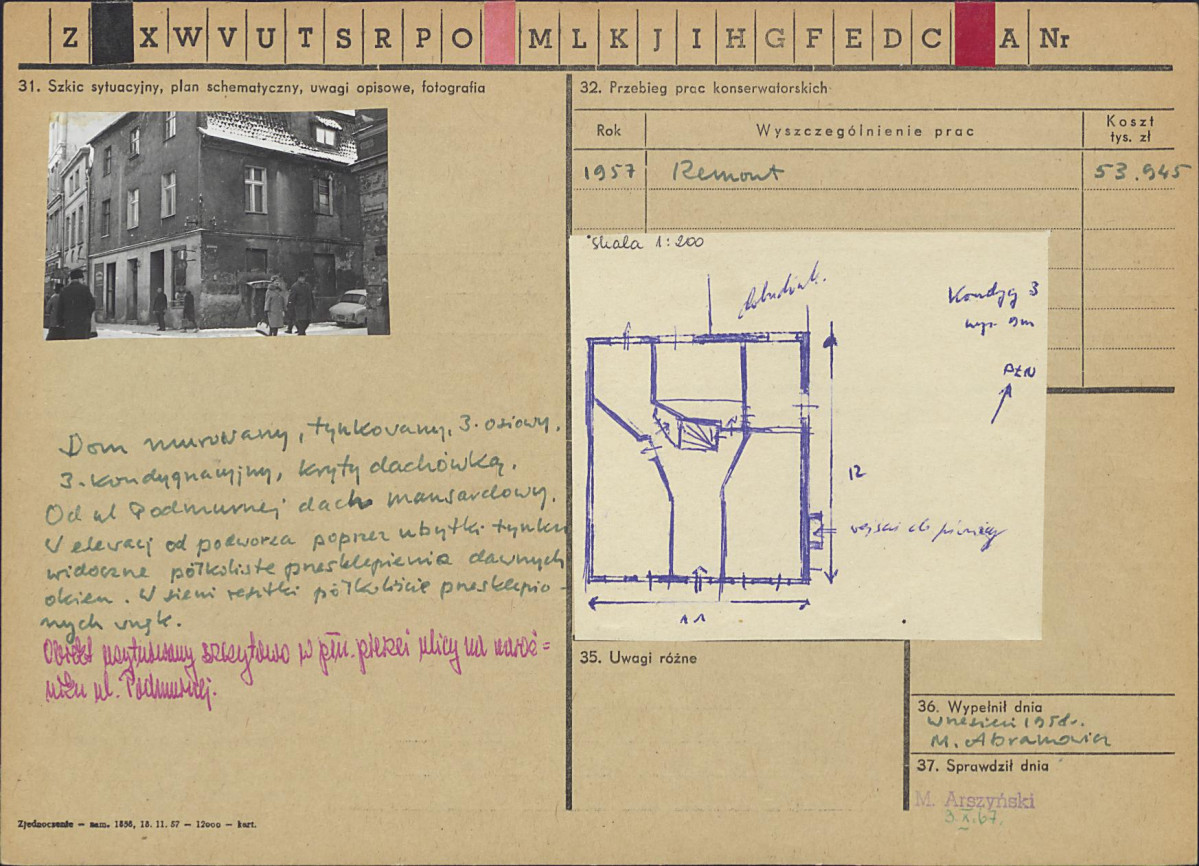 Z X W V U T S R P O M L K J I H G F E D C A Nr
31. Szkic sytuacyjny, plan schematyczny, uwagi opisowe, fotografia
Dom murowany, tynkowany, 3. osiowy,
3. kondygnacyjny, kryty dachówką.
Od ul Podmurnej dach mansardowy.
W elewacj od podworza poprzez ubytki tynku
widoczne półkoliste przesklepienia dawnych
okien. W sieni resztki półkoliście przesklepio-
nych wnęk.
Obiekt usytuowany szczytowo w płn. pierzei ulicy na naroż=
niku ul. Podmurnej.
Zjednoczenie — zam. 1856, 15. 11. 57 — 12000 — kart.
32. Przebieg prac konserwatorskich
Rok Wyszczególnienie prac Koszt tys. zł
1957 Remont 53.945
Skala 1:200
Kondyg 3
wys. 9m
PŁN
12
wejści do piwnicy
11
35. Uwagi różne
36. Wypełnił dnia
wrzesień 1958r.
M. Abramowicz
37. Sprawdził dnia
M. Arszyński
3.X.67.